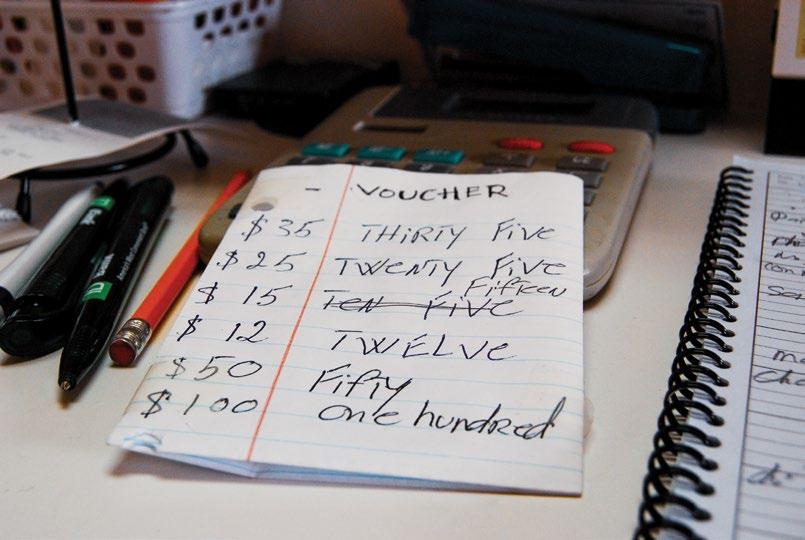 - VOUCHER
$35 THiRTY Five
$25 TWENTY Five
$15 Ten Five Fifteen
$12 TWELVe
$50 Fifty
$100 one hundred